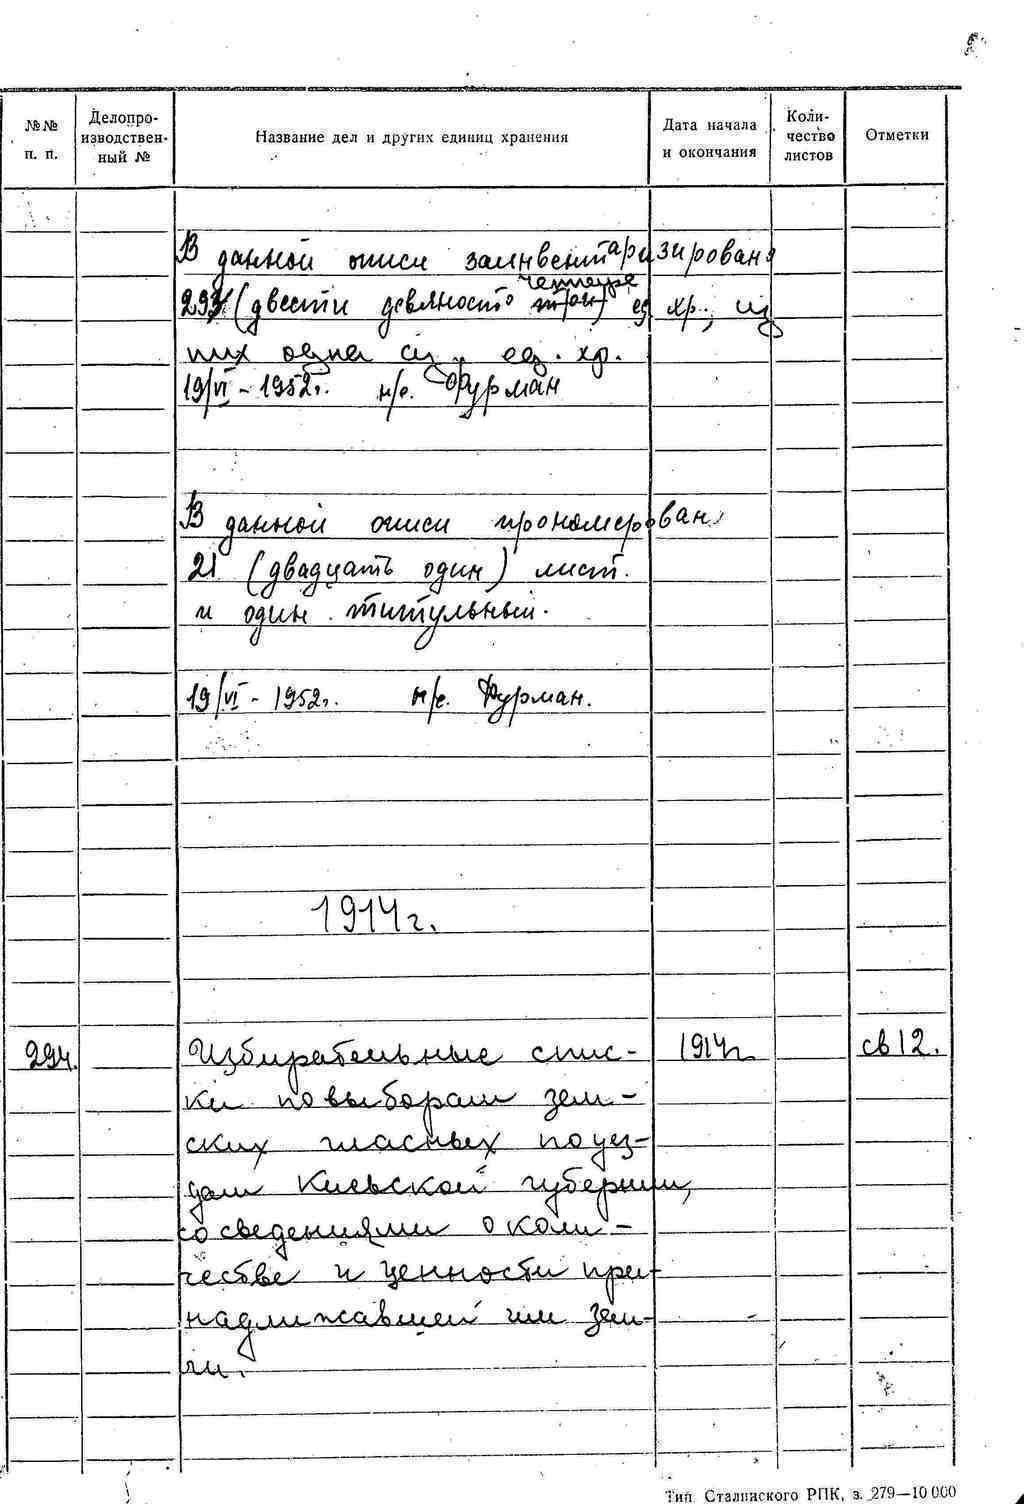 №№ п. п.
Делопро-
изводствен-
ный №
Название дел и других единиц хранения
Дата начала
и окончания
Коли-
чество
листов
Отметки
В данной описи заинвентаризирован
четыре
294 (двести девяносто три) ед хр., из
них одна ед. хр.
19/VI - 1952г. н/с. Фурман
В данной описи прономерован
21 (двадцать один) лист.
и один титульный.
19/VI - 1952г. н/с. Фурман.
1914г.
294. Избирательные спис- 1914г. св 12.
ки по выборам зем-
ских гласных по уез-
дам Киевской губернии,
со сведениями о коли-
честве и ценности при-
надлижавшей им зем-
ли.
Тип Сталинского РПК, з. 279—10 000